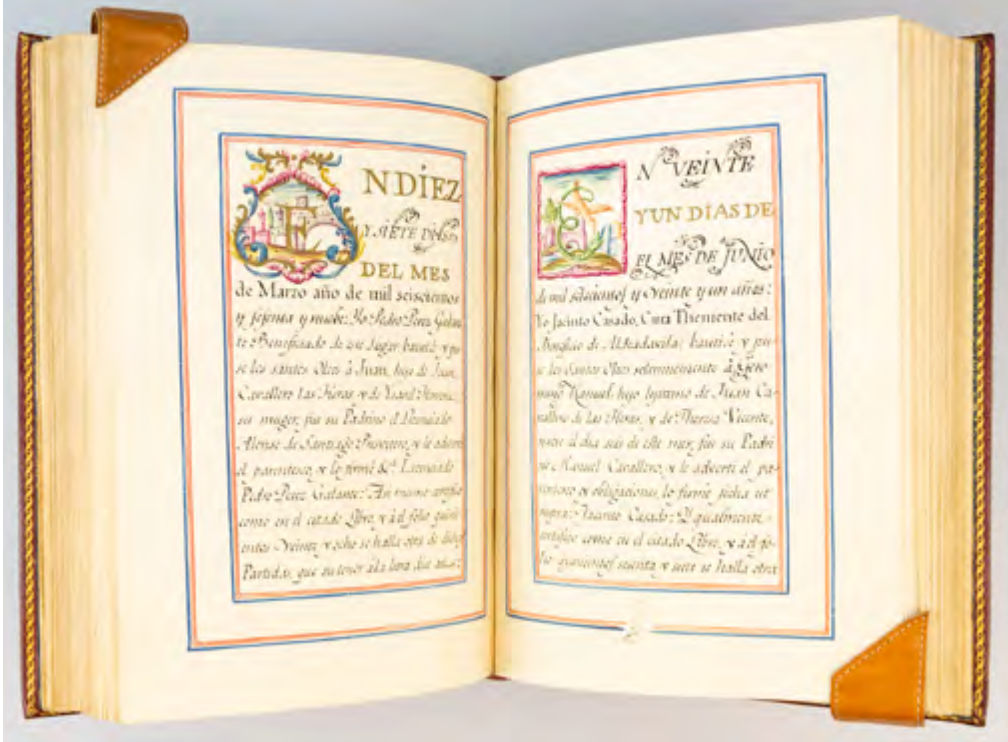 EN DIEZ
Y SIETE DIAS
DEL MES
de Marzo año de mil seiscientos
y sesenta y nuebe: Yo Pedro Perez Galan-
te Beneficiado de este lugar bautizé y pu-
se los santos Oleos à Juan, hijo de Juan
Cavallero Las Floras y de Ysavel
su muger, fue su Padrino el Licenciado
Alonso de Santiago Presvitero, y le adverti
el parentesco, y lo firmé &ª. Licenciado
Pedro Perez Galante: Asi mismo certifico
como en el citado Libro, y à el folio quini-
entos Veinte y ocho se halla otra de dichas
Partidas, que su tenor à la letra dice
EN VEINTE
Y UN DIAS DE
EL MES DE JUNIO
de mil seiscientos y Veinte y un años:
Yo Jacinto Casado, Cura Theniente del
Beneficio de Aldeadavila; bautizé y pu-
se los Santos Oleos solemnemente à Gero-
nimo Manuel hijo lejitimo de Juan Ca-
vallero de las Floras, y de Theresa Vicente,
el dia seis de este mes, fue su Padri-
no Manuel Cavallero, y le adverti el pa-
rentesco y obligaciones, lo firmé fecha ut
supra: Jacinto Casado: Y igualmente,
certifico como en el citado Libro, y à el fo-
lio quinientos y siete se halla otra